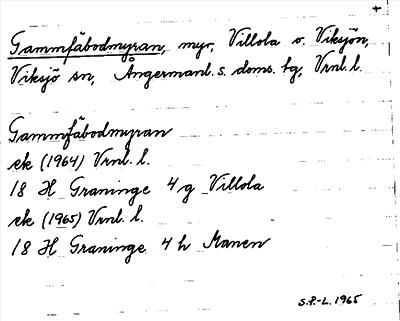 Gammfäbodmyran, myr, Villola o. Viksjön,
Viksjö sn, Ångermanl. s. doms. tg, Vrnl. l.
Gammfäbodmyran
ek (1964) Vrnl. l.
18 H Graninge 4 g Villola
ek (1965) Vrnl. l.
18 H Graninge 4 h Manen
S.P.-L. 1965